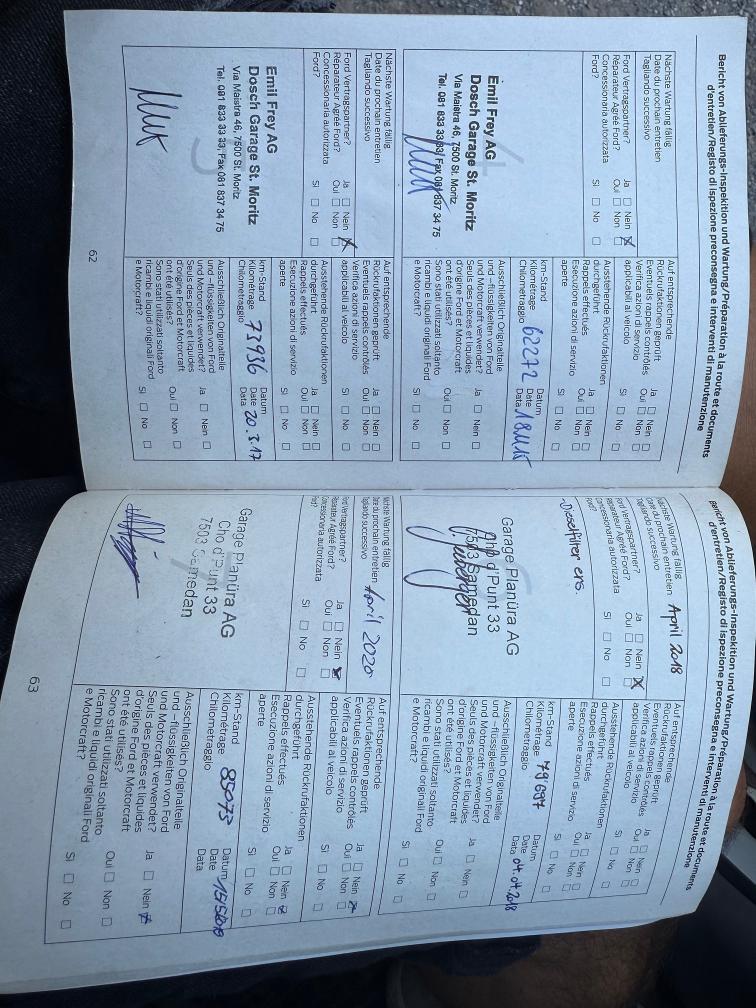 Bericht von Ablieferungs-Inspektion und Wartung/Préparation à la route et documents
d'entretien/Registo di ispezione preconsegna e interventi di manutenzione
Nächste Wartung fällig
Date du prochain entretien
Tagliando successivo
Ford Vertragspartner? Ja Nein
Réparateur Agréé Ford? Oui Non
Concessionaria autorizzata
Ford? Si No
Emil Frey AG
Dosch Garage St. Moritz
Via Maistra 46, 7500 St. Moritz
Tel. 081 833 33 33, Fax 081 837 34 75
Auf entsprechende
Rückrufaktionen geprüft Ja Nein
Eventuels rappels contrôlés Oui Non
Verifica azioni di servizio
applicabili al veicolo Si No
Ausstehende Rückrufaktionen
durchgeführt Ja Nein
Rappels effectués Oui Non
Esecuzione azioni di servizio
aperte Si No
km-Stand Datum
Kilométrage 62272 Date
Chilometraggio Data
Ausschließlich Originalteile
und –flüssigkeiten von Ford
und Motorcraft verwendet? Ja Nein
Seuls des pièces et liquides
d'origine Ford et Motorcraft
ont été utilisés? Oui Non
Sono stati utilizzati soltanto
ricambi e liquidi originali Ford
e Motorcraft? Si No
Nächste Wartung fällig
Date du prochain entretien
Tagliando successivo
Ford Vertragspartner? Ja Nein
Réparateur Agréé Ford? Oui Non
Concessionaria autorizzata
Ford? Si No
Emil Frey AG
Dosch Garage St. Moritz
Via Maistra 46, 7500 St. Moritz
Tel. 081 833 33 33, Fax 081 837 34 75
Auf entsprechende
Rückrufaktionen geprüft Ja Nein
Eventuels rappels contrôlés Oui Non
Verifica azioni di servizio
applicabili al veicolo Si No
Ausstehende Rückrufaktionen
durchgeführt Ja Nein
Rappels effectués Oui Non
Esecuzione azioni di servizio
aperte Si No
km-Stand Datum
Kilométrage 73936 Date 20.3.17
Chilometraggio Data
Ausschließlich Originalteile
und –flüssigkeiten von Ford
und Motorcraft verwendet? Ja Nein
Seuls des pièces et liquides
d'origine Ford et Motorcraft
ont été utilisés? Oui Non
Sono stati utilizzati soltanto
ricambi e liquidi originali Ford
e Motorcraft? Si No
62
Bericht von Ablieferungs-Inspektion und Wartung/Préparation à la route et documents
d'entretien/Registo di ispezione preconsegna e interventi di manutenzione
Nächste Wartung fällig
Date du prochain entretien April 2018
Tagliando successivo
Ford Vertragspartner? Ja Nein
Réparateur Agréé Ford? Oui Non
Concessionaria autorizzata
Ford? Si No
-Dieselfilter ers.
Garage Planüra AG
Cho d'Punt 33
7503 Samedan
Auf entsprechende
Rückrufaktionen geprüft Ja Nein
Eventuels rappels contrôlés Oui Non
Verifica azioni di servizio
applicabili al veicolo Si No
Ausstehende Rückrufaktionen
durchgeführt Ja Nein
Rappels effectués Oui Non
Esecuzione azioni di servizio
aperte Si No
km-Stand Datum
Kilométrage 79697 Date 04.04.2018
Chilometraggio Data
Ausschließlich Originalteile
und –flüssigkeiten von Ford
und Motorcraft verwendet? Ja Nein
Seuls des pièces et liquides
d'origine Ford et Motorcraft
ont été utilisés? Oui Non
Sono stati utilizzati soltanto
ricambi e liquidi originali Ford
e Motorcraft? Si No
Nächste Wartung fällig
Date du prochain entretien April 2020
Tagliando successivo
Ford Vertragspartner? Ja Nein
Réparateur Agréé Ford? Oui Non
Concessionaria autorizzata
Ford? Si No
Garage Planüra AG
Cho d'Punt 33
7503 Samedan
Auf entsprechende
Rückrufaktionen geprüft Ja Nein
Eventuels rappels contrôlés Oui Non
Verifica azioni di servizio
applicabili al veicolo Si No
Ausstehende Rückrufaktionen
durchgeführt Ja Nein
Rappels effectués Oui Non
Esecuzione azioni di servizio
aperte Si No
km-Stand Datum
Kilométrage 85073 Date
Chilometraggio Data
Ausschließlich Originalteile
und –flüssigkeiten von Ford
und Motorcraft verwendet? Ja Nein
Seuls des pièces et liquides
d'origine Ford et Motorcraft
ont été utilisés? Oui Non
Sono stati utilizzati soltanto
ricambi e liquidi originali Ford
e Motorcraft? Si No
63